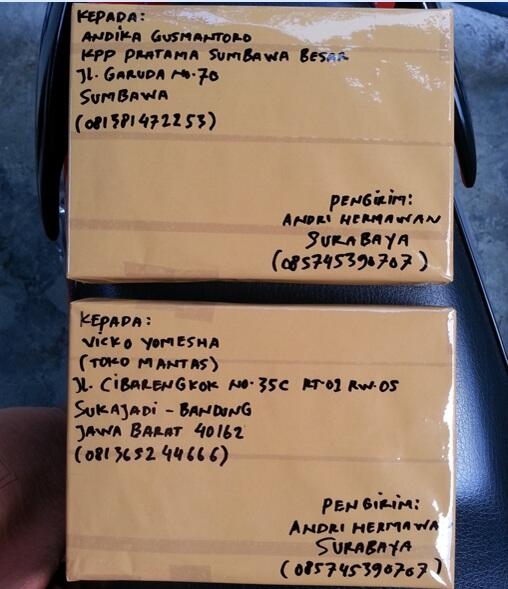 KEPADA:
ANDIKA GUSMANTORO
KPP PRATAMA SUMBAWA BESAR
Jl. GARUDA NO.70
SUMBAWA
(081381472253)
PENGIRIM:
ANDRI HERMAWAN
SURABAYA
(085745390707)
KEPADA:
VICKO YOMESHA
(TOKO MANTAS)
JL. CIBARENGKOK NO.35C RT-02 RW-05
SUKAJADI - BANDUNG
JAWA BARAT 40162
(081365244666)
PENGIRIM:
ANDRI HERMAWA
SURABAYA
(085745390707)